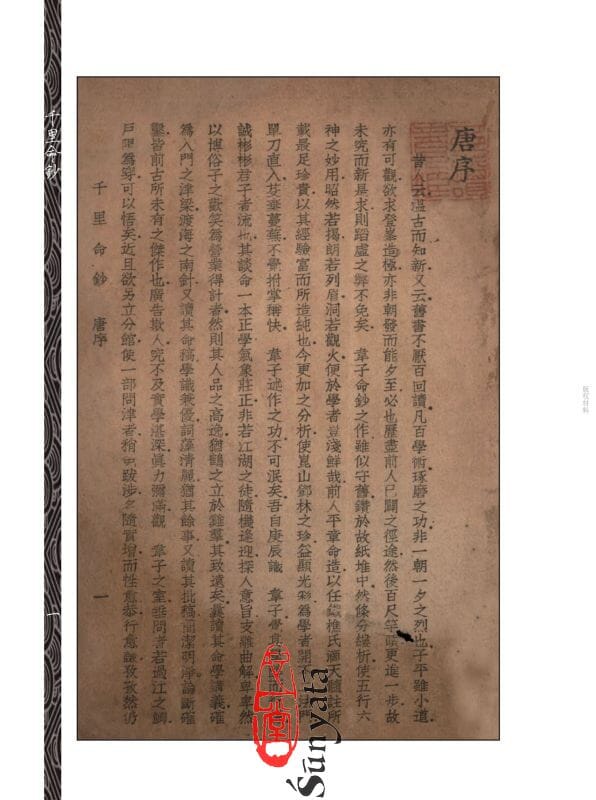 唐序
昔人云溫古而知新又云舊書不厭百回讀凡百學術琢磨之功非一朝一夕之烈也子平雖小道
亦有可觀欲求登峯造極亦非朝發而能夕至必也歷盡前人已闢之徑途然後百尺竿頭更進一步故
未究而新是求則蹈虛之弊不免矣 韋子命鈔之作雖似守舊鑽於故紙堆中然條分縷析使五行六
神之妙用昭然若揭朗若列眉洞若觀火便於學者豈淺鮮哉前人平章命造以任鐵樵氏滴天髓註所
載最足珍貴以其經驗富而所造純也今更加之分析使崑山鄧林之珍益顯光彩爲學者開不
單刀直入艾垂蔓蕪不覺拊掌稱快 韋子述作之功不可泯矣吾自庚辰識 韋子覺其
誠彬彬君子者流也其談命一本正學氣象莊正非若江湖之徒隨機逢迎探人意旨支離曲解卑卑然
以博俗子之歡笑爲營業得計者然則其人品之高逸猶鶴之立於雞羣其致遠矣曩讀其命學講義確
爲入門之津梁渡海之南針又讀其命稿學識兼優詞藻清麗猶其餘事又讀其批稿簡潔明淨論斷確
鑿皆前古所未有之傑作也廣告欺人究不及實學湛深眞力彌滿觀 韋子之室趾問者若過江之鯽
戶限爲穿可以悟矣近且欲另立分館使一部問津者稍免跋涉名隨實增而性愈恭行愈謙孜孜然仍
千里命鈔 唐序
一
千里命鈔
一
版权材料
Śūnyatā